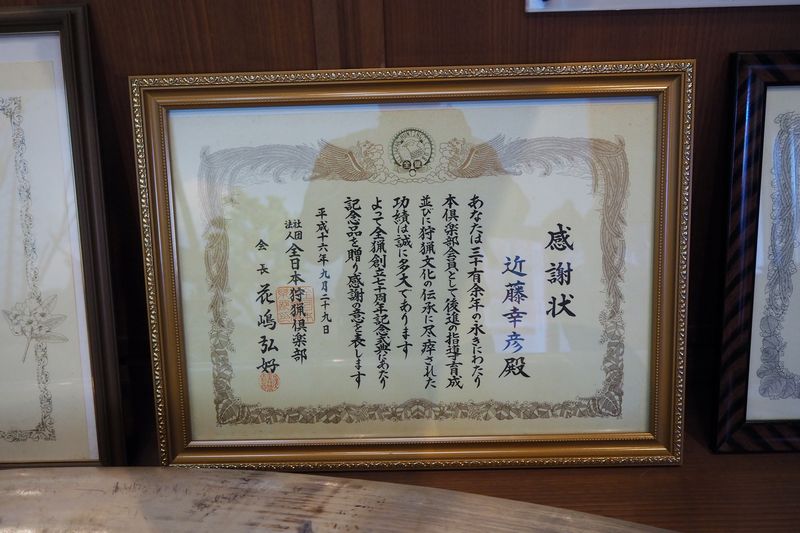 感謝状
近藤幸彦殿
あなたは三十有余年の永きにわたり
本倶楽部会員として後進の指導育成
並びに狩猟文化の伝承に尽瘁された
功績は誠に多大であります
よって全猟創立七十周年記念式典にあたり
記念品を贈り感謝の意を表します
平成十六年九月二十九日
社団法人全日本狩猟倶楽部
会長花嶋弘好